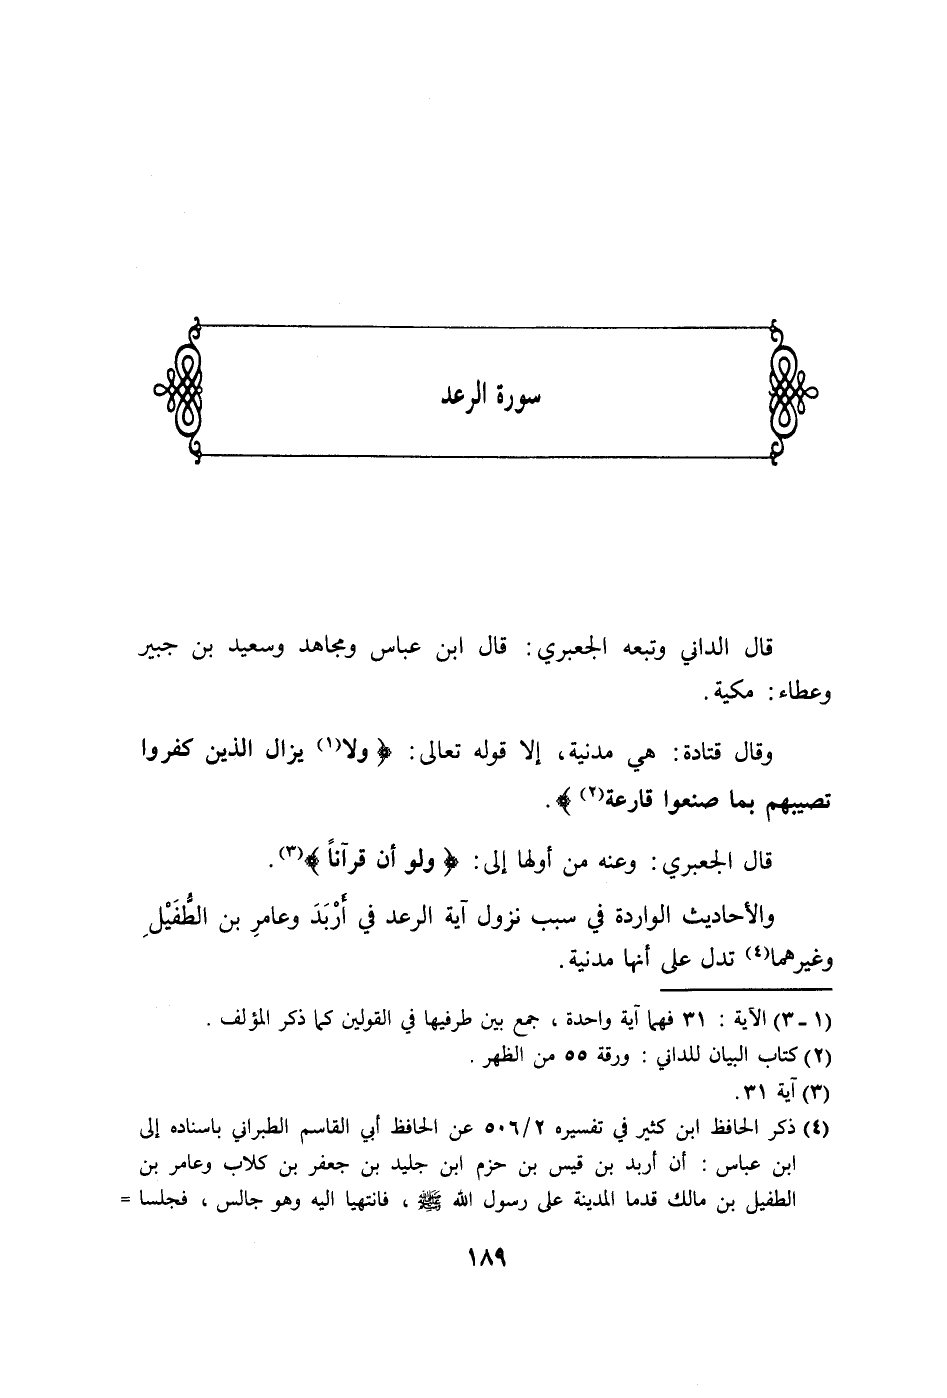 سورة الرعد
قال الداني وتبعه الجعبري: قال ابن عباس ومجاهد وسعيد بن جبير
وعطاء: مكية.
وقال قتادة: هي مدنية، إلا قوله تعالى: ﴿ ولا(١) يزال الذين كفروا
تصيبهم بما صنعوا قارعة(٢) ﴾.
قال الجعبري: وعنه من أولها إلى: ﴿ ولو أن قرآناً ﴾(٣).
والأحاديث الواردة في سبب نزول آية الرعد في أَرْبَدَ وعامرِ بن الطُّفَيْلِ
وغيرهما(٤) تدل على أنها مدنية.
(١ ـ ٣) الآية : ٣١ فهما آية واحدة ، جمع بين طرفيها في القولين كما ذكر المؤلف .
(٢) كتاب البيان للداني : ورقة ٥٥ من الظهر .
(٣) آية ٣١.
(٤) ذكر الحافظ ابن كثير في تفسيره ٥٠٦/٢ عن الحافظ أبي القاسم الطبراني باسناده إلى
ابن عباس : أن أربد بن قيس بن حزم ابن جليد بن جعفر بن كلاب وعامر بن
الطفيل بن مالك قدما المدينة على رسول الله ﷺ ، فانتهيا اليه وهو جالس ، فجلسا =
١٨٩